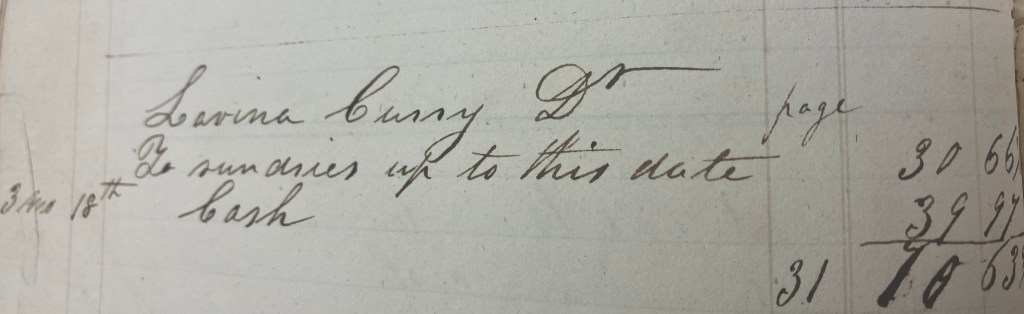 Lavina Curry Dr page
To sundries up to this date 30 66
3 mo 18th Cash 39 97
31 70 63